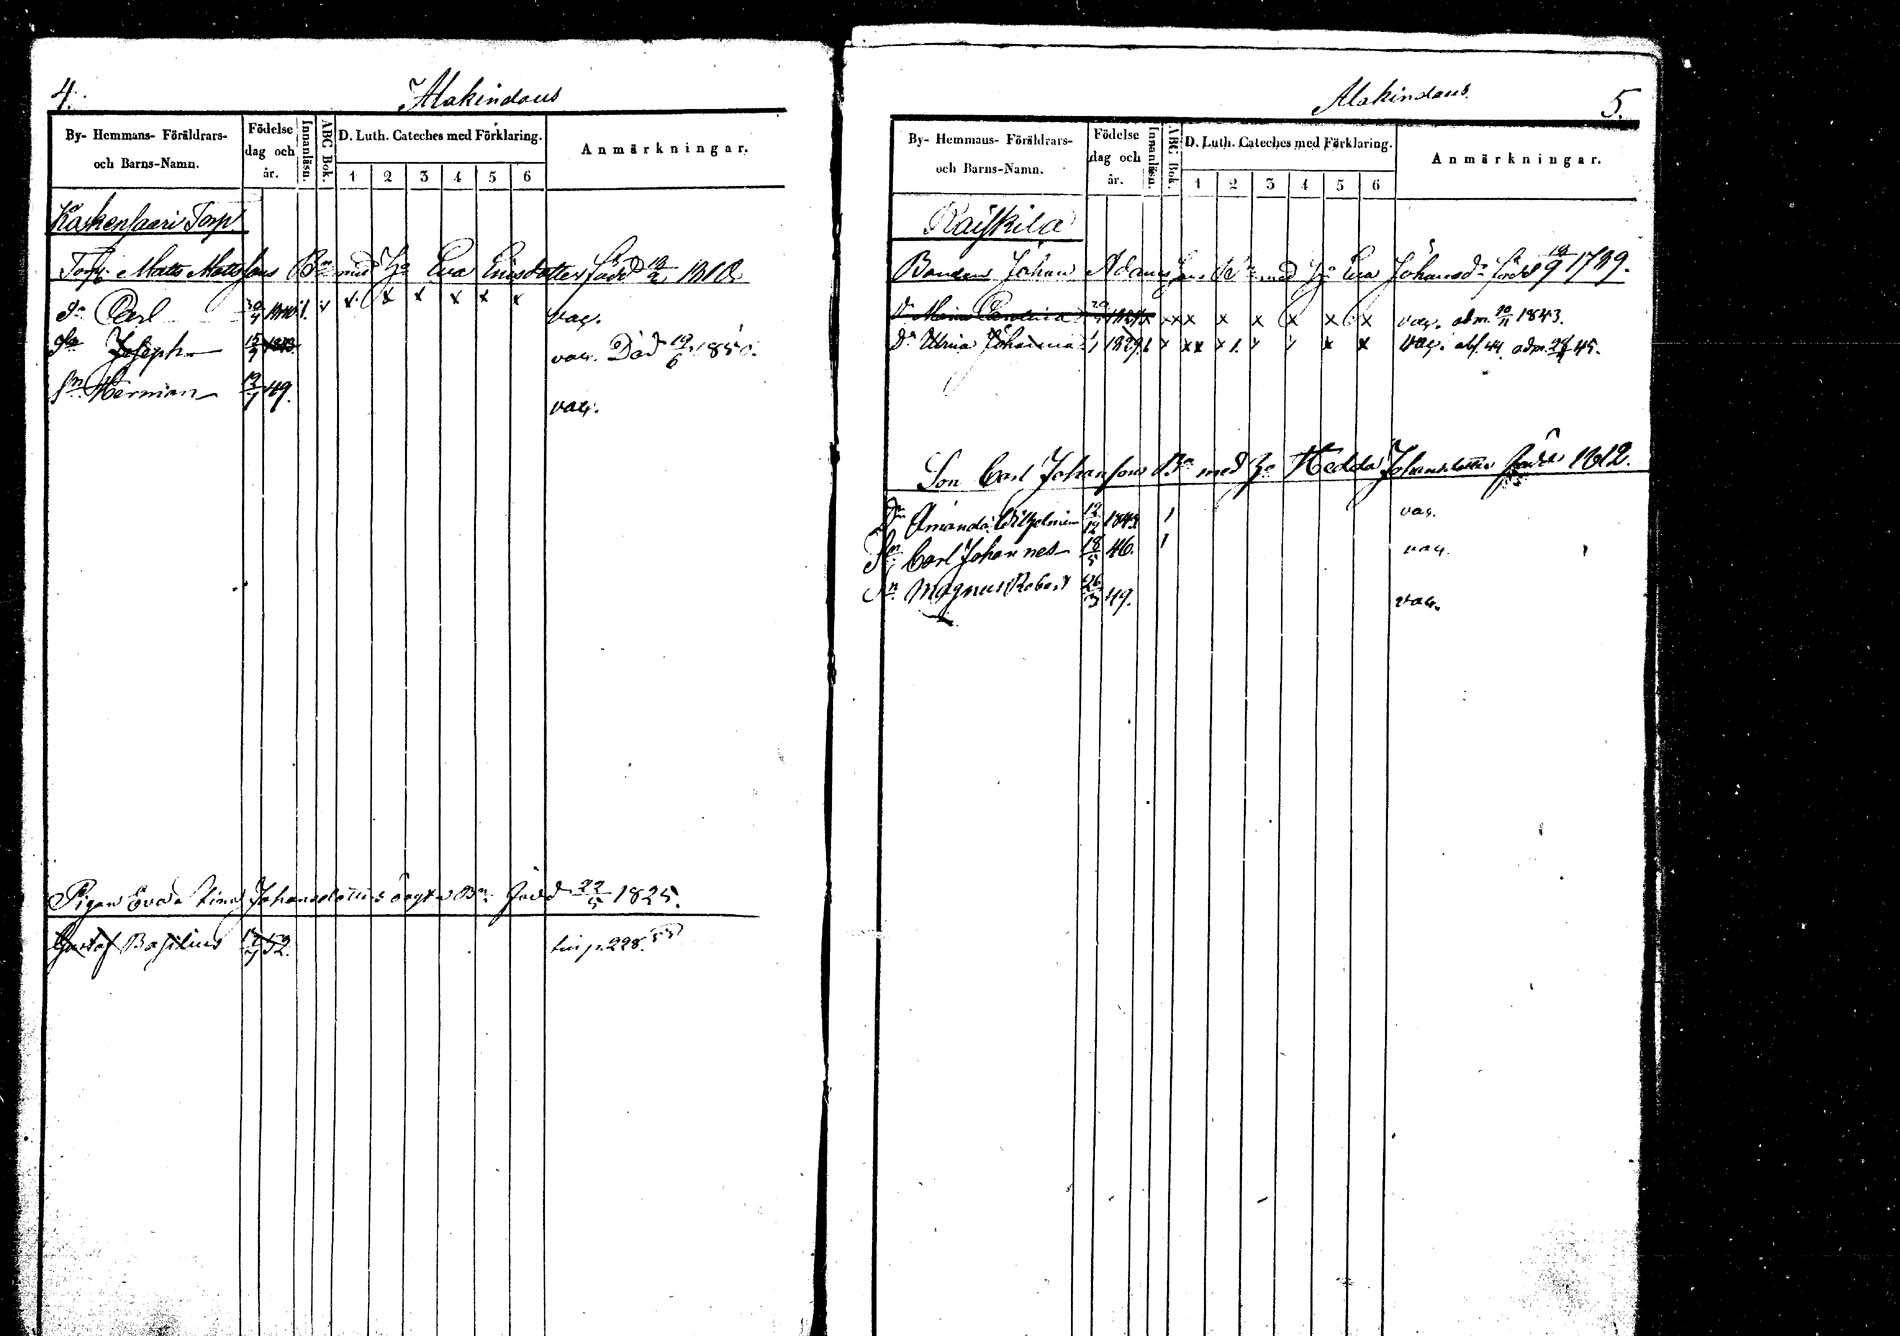 4.
Alakindaus
By- Hemmans- Föräldrars- och Barns-Namn.
Födelse dag och år.
Innanläsn.
ABC Bok.
D. Luth. Cateches med Förklaring.
1 2 3 4 5 6
Anmärkningar.
Torp
Torp. Matts Mattssons Bn med Ho Eva Ericsdotter född
Sn Carl 1. x x x x x x vac.
Sn Joseph vac. Död 19/6 1850.
Sn Herman 49. vac.
Pigan Johansdotters Bn född 22/5 1825.
Gustaf Basilius 52. 228.
5.
Alakindaus.
By- Hemmans- Föräldrars- och Barns-Namn.
Födelse dag och år.
Innanläsn.
ABC Bok.
D. Luth. Cateches med Förklaring.
1 2 3 4 5 6
Anmärkningar.
Raiskila
Bonden Johan Adamssons Bn med Ho Eva Johansdr född 1789.
x x x x x x vac. adm. 10/11 1843.
Dr Ulrica Johanna 1829. vac. abs. 44. adm. 45.
Son Carl Johanssons Bn med Ho Hedda Johansdotter född 1812.
Dr Amanda Wilhelmina 1843. 1 vac.
Sn Carl Johannes 18/5 46. 1 vac.
Sn Magnus Robert 26/3 49. vac.